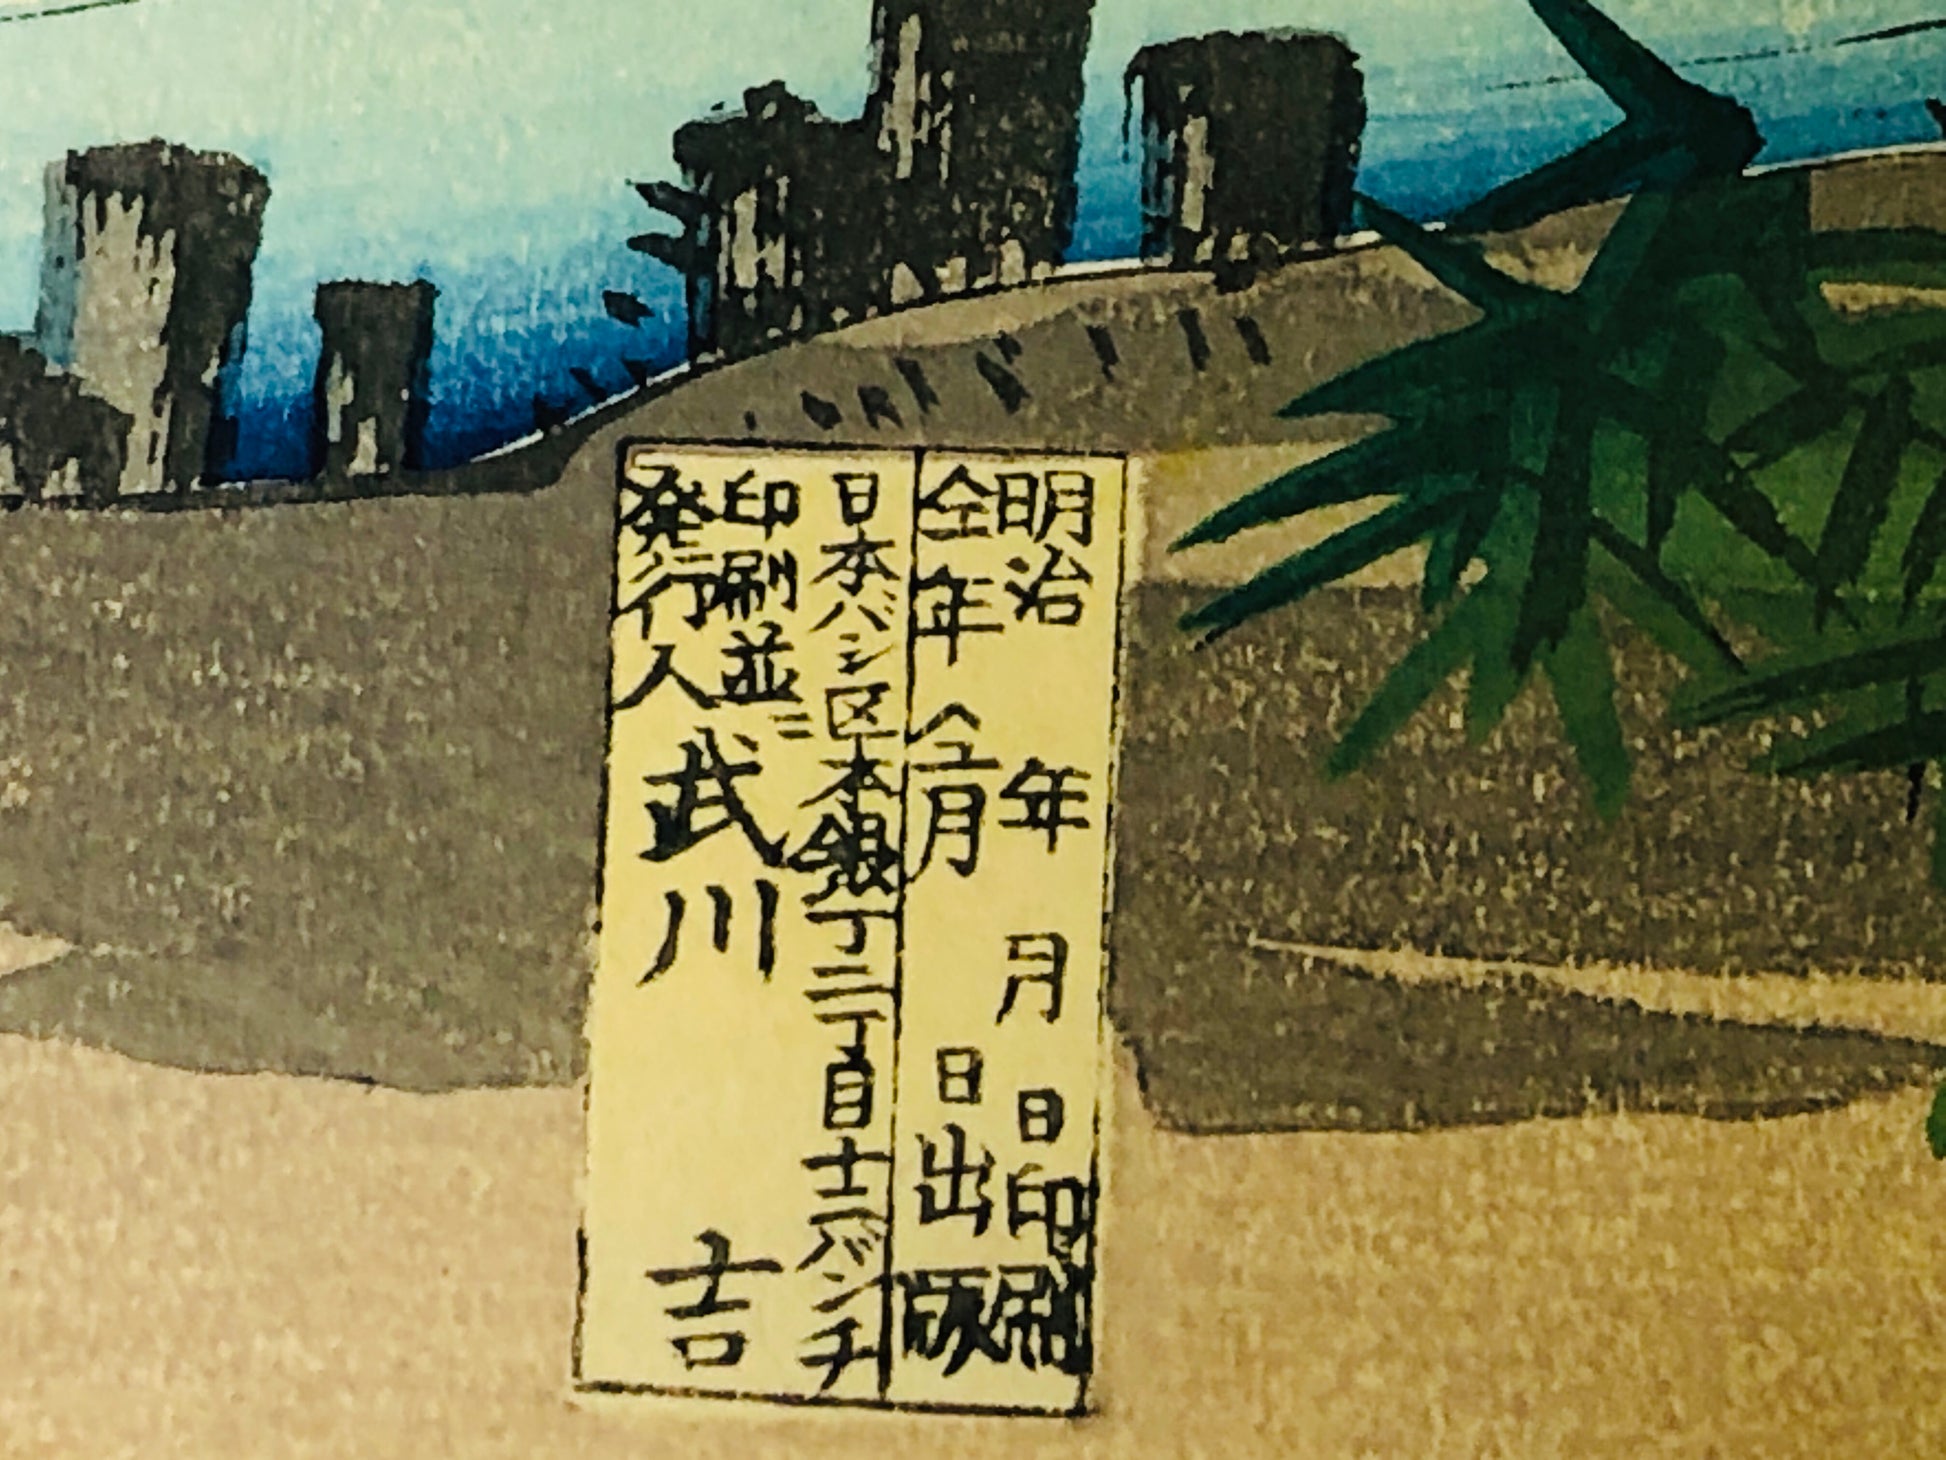 明治　年　月　日印刷
仝年　仝月　日出版
日本バシ区本銀丁二丁目十二バンチ
印刷並ニ
発行人 武川 吉